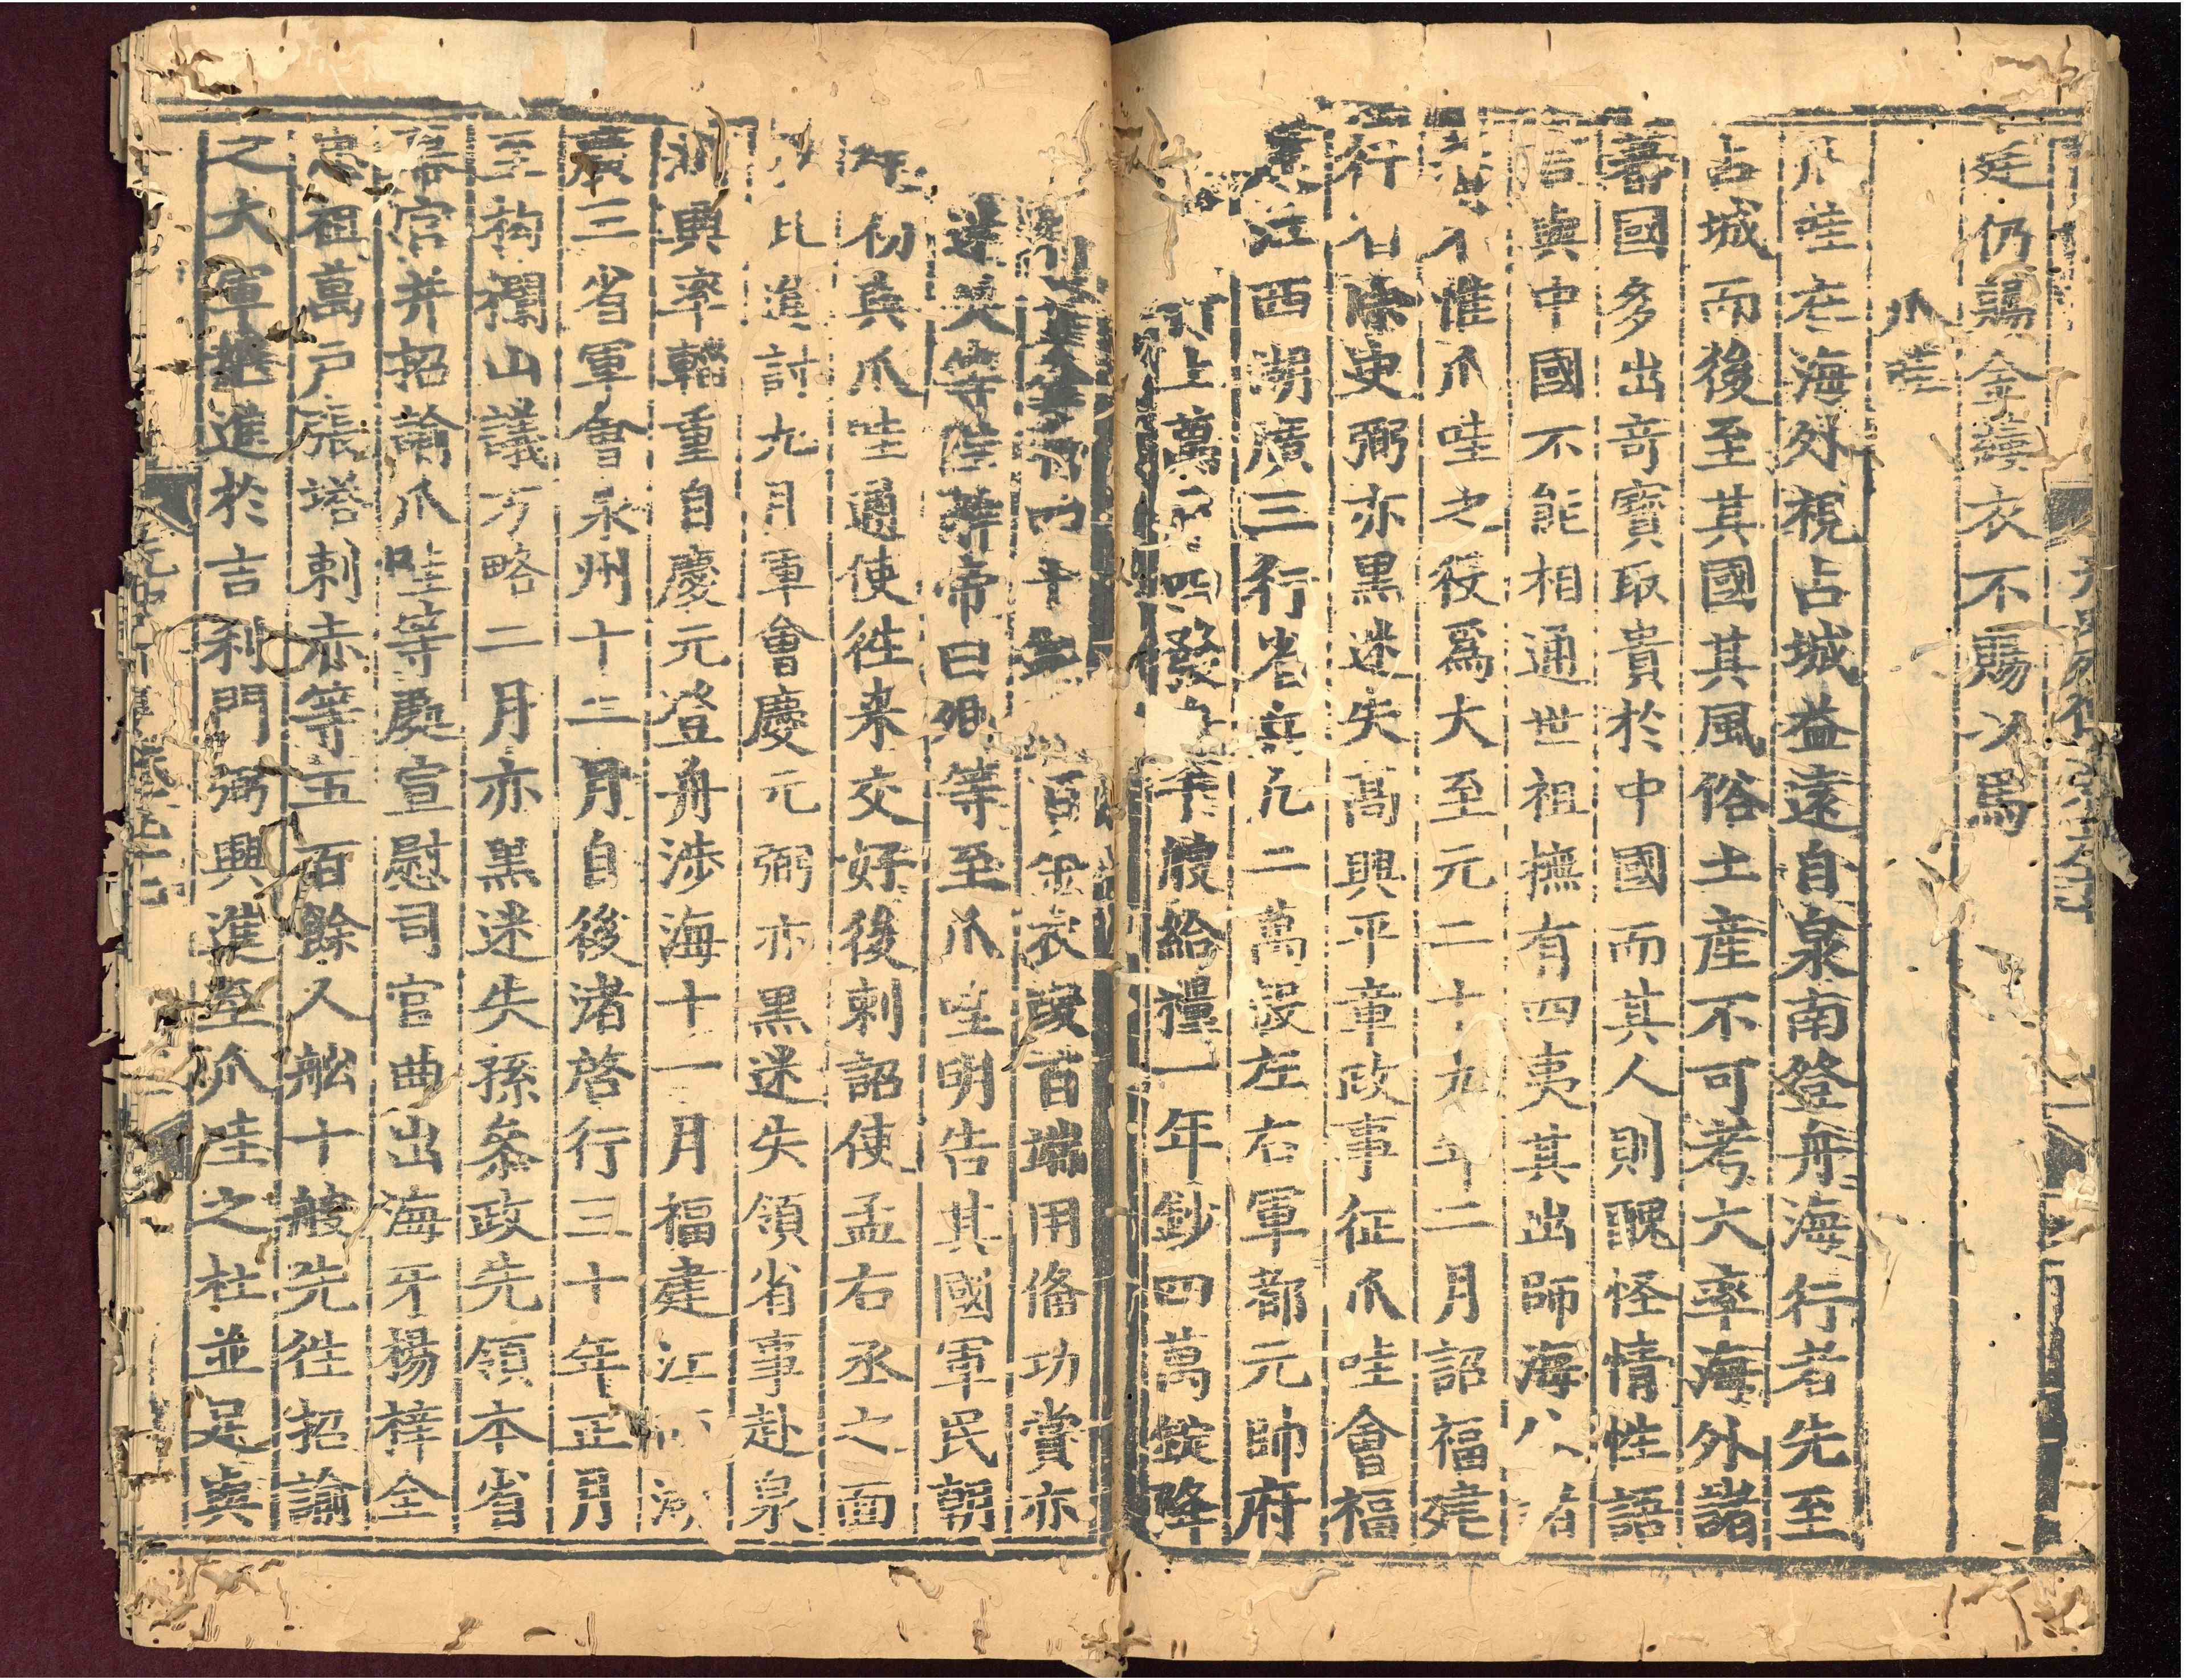 廷仍賜金織衣不賜以馬
爪哇
爪哇在海外視占城益遠自泉南登舟海行者先至
占城而後至其國其風俗土産不可考大率海外諸
蕃國多出奇寶取貴於中國而其人則醜怪情性語
言與中國不能相通世祖撫有四夷其出師海外諸
蕃者惟爪哇之役爲大至元二十九年二月詔福建
行省除史弼亦黑迷失高興平章政事征爪哇會福
建江西湖廣三行省兵凡二萬設左右軍都元帥府
二征行上萬戸四發舟千艘給糧一年鈔四萬錠降
虎符十金符四十銀符百金衣叚百端用俻功賞亦
黑迷失等陛辭帝曰卿等至爪哇明告其國軍民朝
廷初與爪哇通使徃来交好後刺詔使孟右丞之面
以此進討九月軍會慶元弼亦黑迷失領省事赴泉
州興率輜重自慶元登舟涉海十一月福建江西湖
廣三省軍會泉州十二月自後渚啓行三十年正月
至构欄山議方略二月亦黑迷失孫叅政先領本省
幕官并招諭爪哇等處宣慰司官曲出海牙楊梓全
忠祖萬戸張塔剌赤等五百餘人舩十艘先徃招諭
之大軍継進於吉利門弼興進至爪哇之杜並足與
元史列傳卷九十七